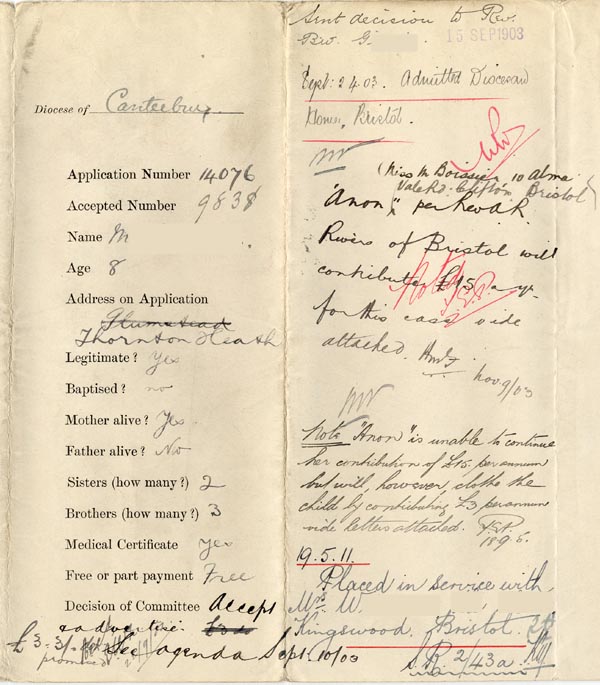 Diocese of Canterbury
Application Number 14076
Accepted Number 9838
Name M
Age 8
Address on Application
Plumstead
Thornton Heath
Legitimate? Yes
Baptised? no
Mother alive? Yes
Father alive? No
Sisters (how many?) 2
Brothers (how many?) 3
Medical Certificate Yes
Free or part payment Free
Decision of Committee Accept
& advertise
£3-3/-
promised
See agenda Sept. 10/03
Sent decision to Rev.
Bw. G.
15 SEP 1903
Sept: 24.03. Admitted Diocesan
Home, Bristol.
(Miss M Boissier 10 Alma
Vale Rd. Clifton Bristol)
"Anon" per Rev A R.
Rivers of Bristol will
contribute £15 a yr.
for this case vide
attached.
Nov 9/03
Noted
Note "Anon" is unable to continue
her contribution of £15 per annum
but will, however, clothe the
child by contributing £3 per annum
vide letters attached.
19.5.11.
Placed in service with
Mrs W.
Kingswood. Bristol.
S.B. 2/43a.